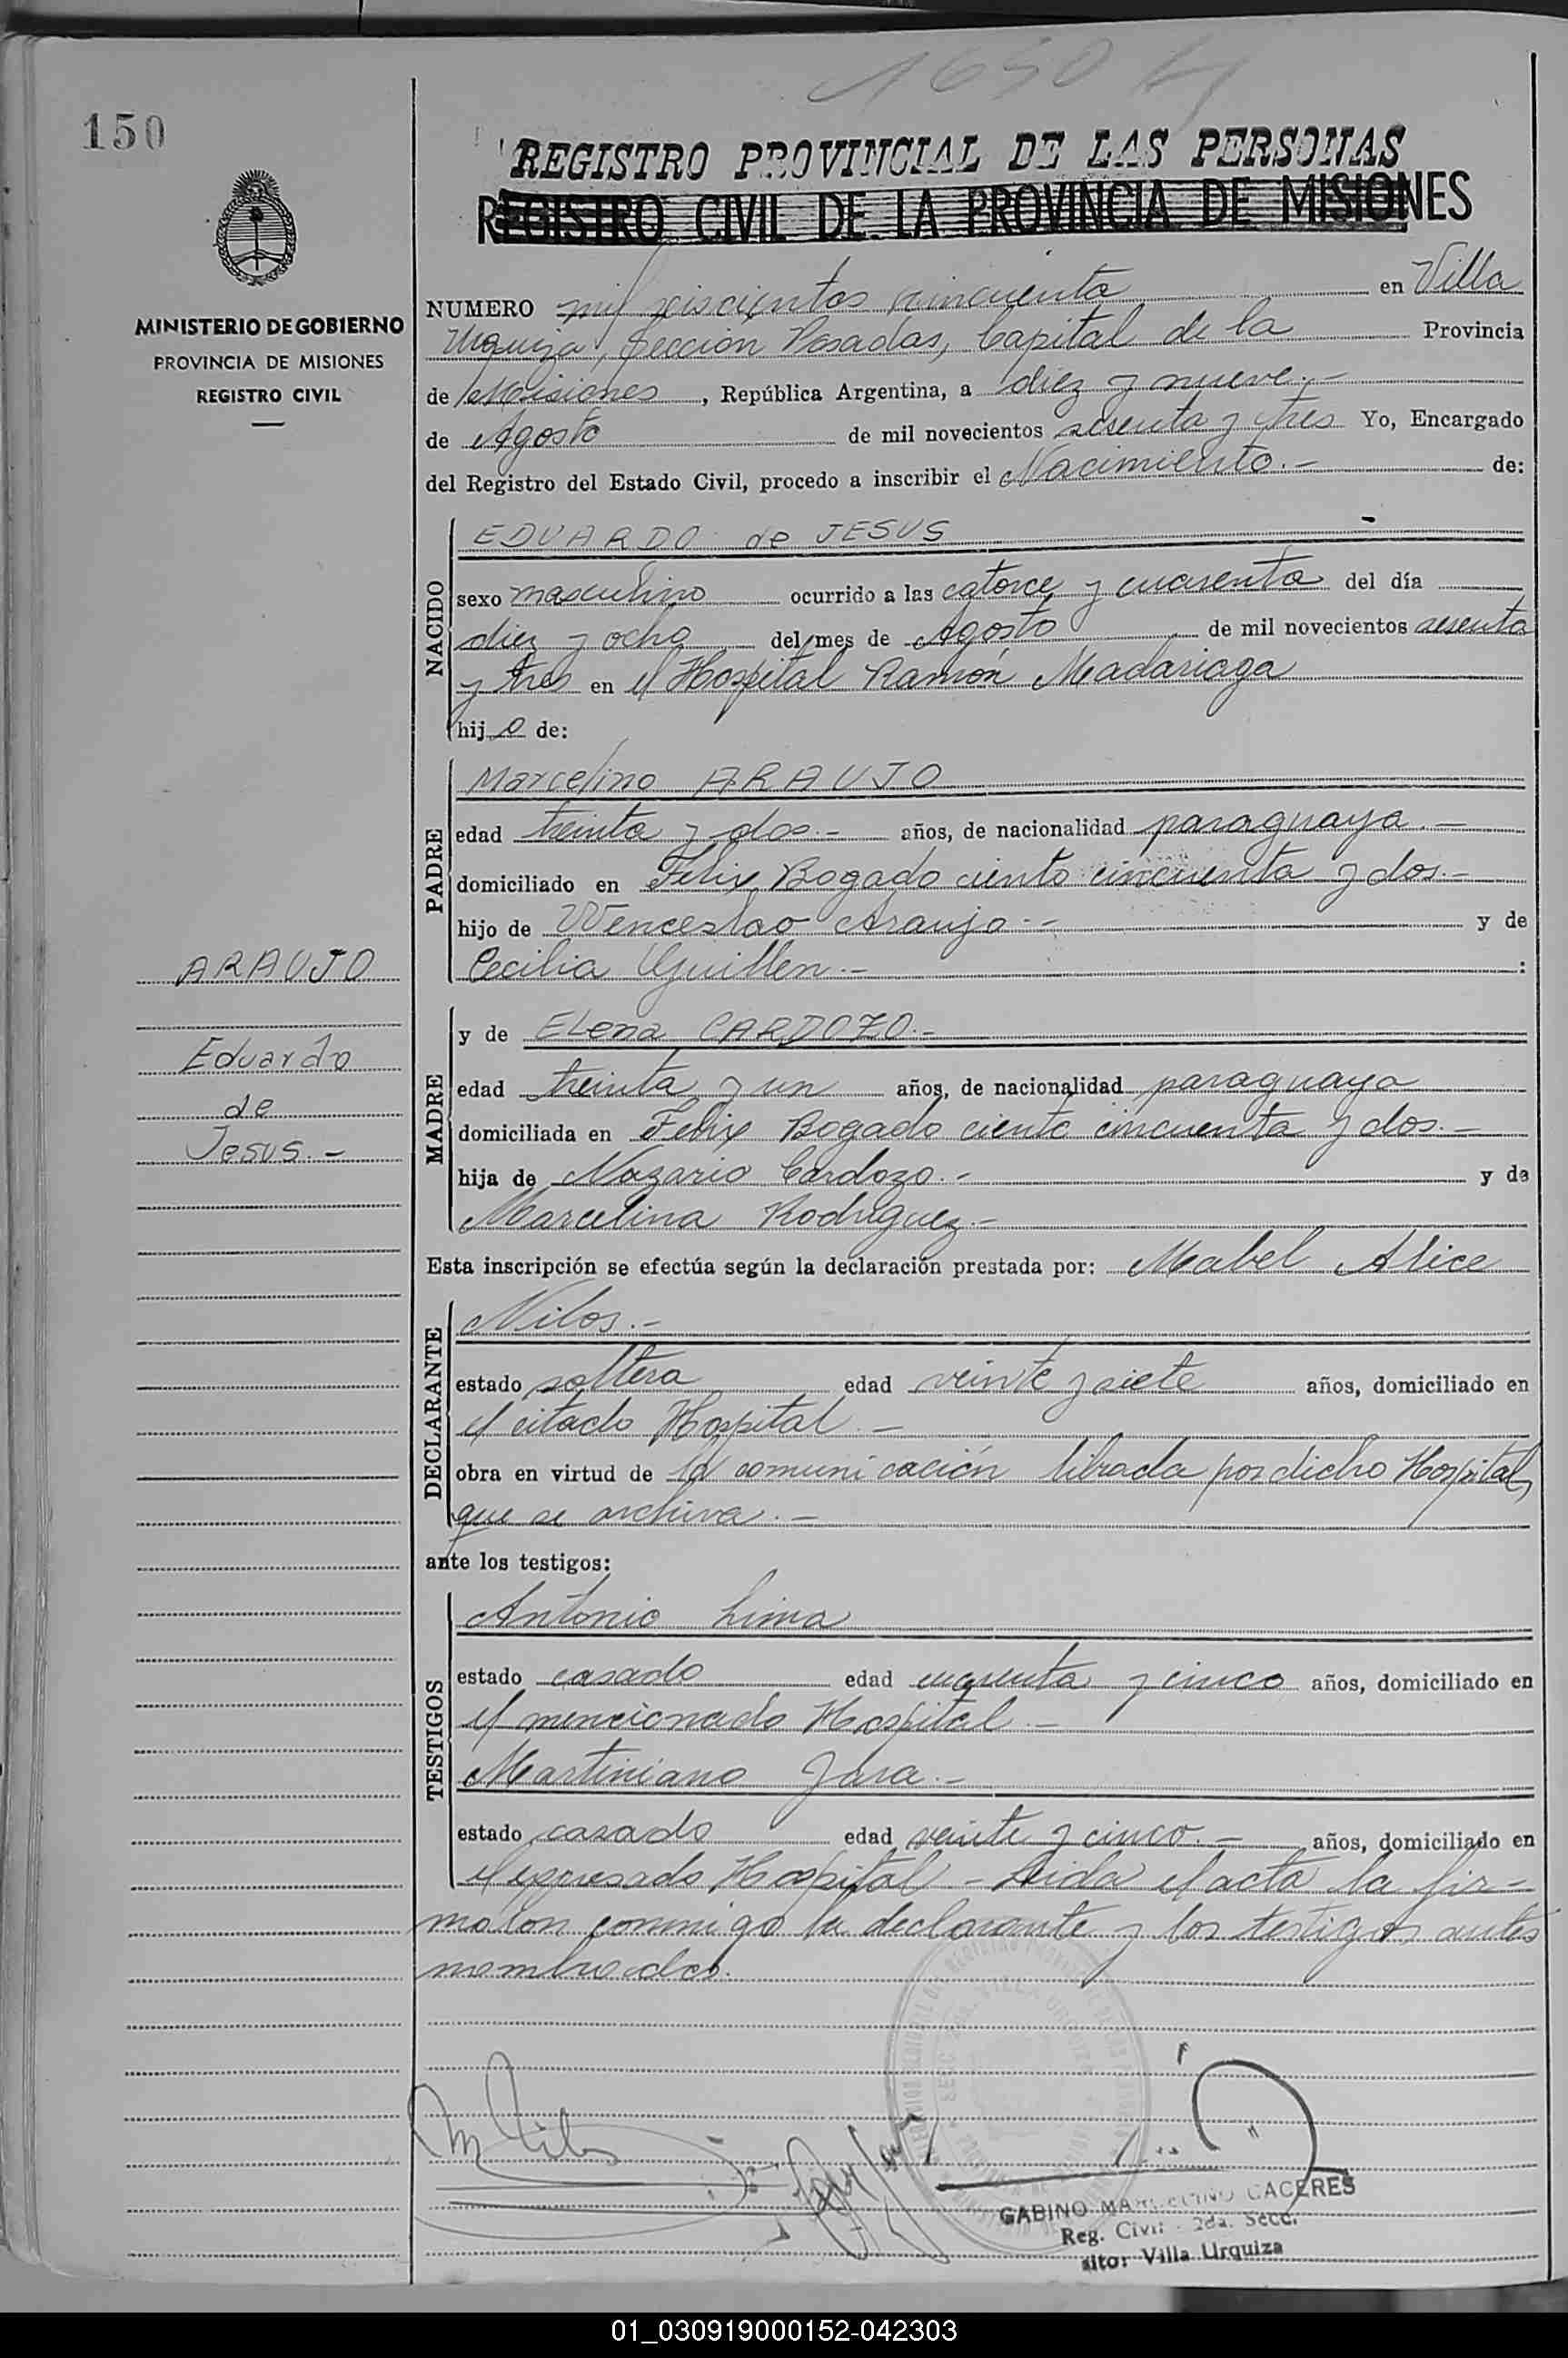 1650
150
REGISTRO PROVINCIAL DE LAS PERSONAS
REGISTRO CIVIL DE LA PROVINCIA DE MISIONES
MINISTERIO DE GOBIERNO
PROVINCIA DE MISIONES
REGISTRO CIVIL
NUMERO mil seiscientos cincuenta en Villa
Urquiza, Sección Posadas, Capital de la Provincia
de Misiones, República Argentina, a diez y nueve.-
de Agosto de mil novecientos sesenta y tres Yo, Encargado
del Registro del Estado Civil, procedo a inscribir el Nacimiento.- de:
NACIDO
EDUARDO de JESUS
sexo masculino ocurrido a las catorce y cuarenta del día
diez y ocho del mes de Agosto de mil novecientos sesenta
y tres en el Hospital Ramón Madariaga
hijo de:
PADRE
Marcelino ARAUJO
edad treinta y dos.- años, de nacionalidad paraguaya.-
domiciliado en Felix Bogado ciento cincuenta y dos.-
hijo de Wenceslao Araujo.- y de
Cecilia Guillen.- :
ARAUJO
Eduardo
de
Jesus.-
MADRE
y de ELena CARDOZO.-
edad treinta y un años, de nacionalidad paraguaya
domiciliada en Felix Bogado ciento cincuenta y dos.-
hija de Nazario Cardozo.- y de
Marcelina Rodriguez.-
Esta inscripción se efectúa según la declaración prestada por: Mabel Alice
DECLARANTE
Nilos.-
estado soltera edad veinte y siete años, domiciliado en
el citado Hospital.-
obra en virtud de la comunicación librada por dicho Hospital,
que se archiva.-
ante los testigos:
TESTIGOS
Antonio Lima
estado casado edad cuarenta y cinco años, domiciliado en
el mencionado Hospital.-
Martiniano Jara.-
estado casado edad veinte y cinco.- años, domiciliado en
el expresado Hospital - Leida el acta la fir-
maron conmigo la declarante y los testigos antes
nombrados.
GABINO CACERES
Reg. Civil 2da. Secc.
Villa Urquiza
01_030919000152-042303